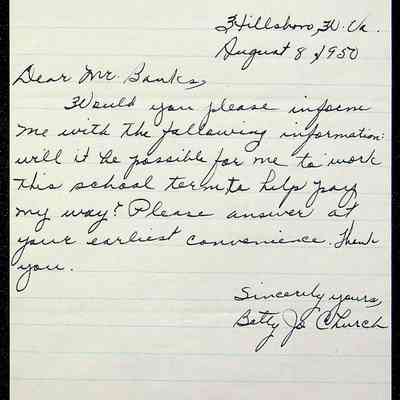 Hillsboro, W. Va.
August 8, 1950
Dear Mr. Banks,
Would you please inform
me with the following information:
will it be possible for me to work
this school term, to help pay
my way? Please answer at
your earliest convenience. Thank
you.
Sincerely yours,
Betty Jo Church